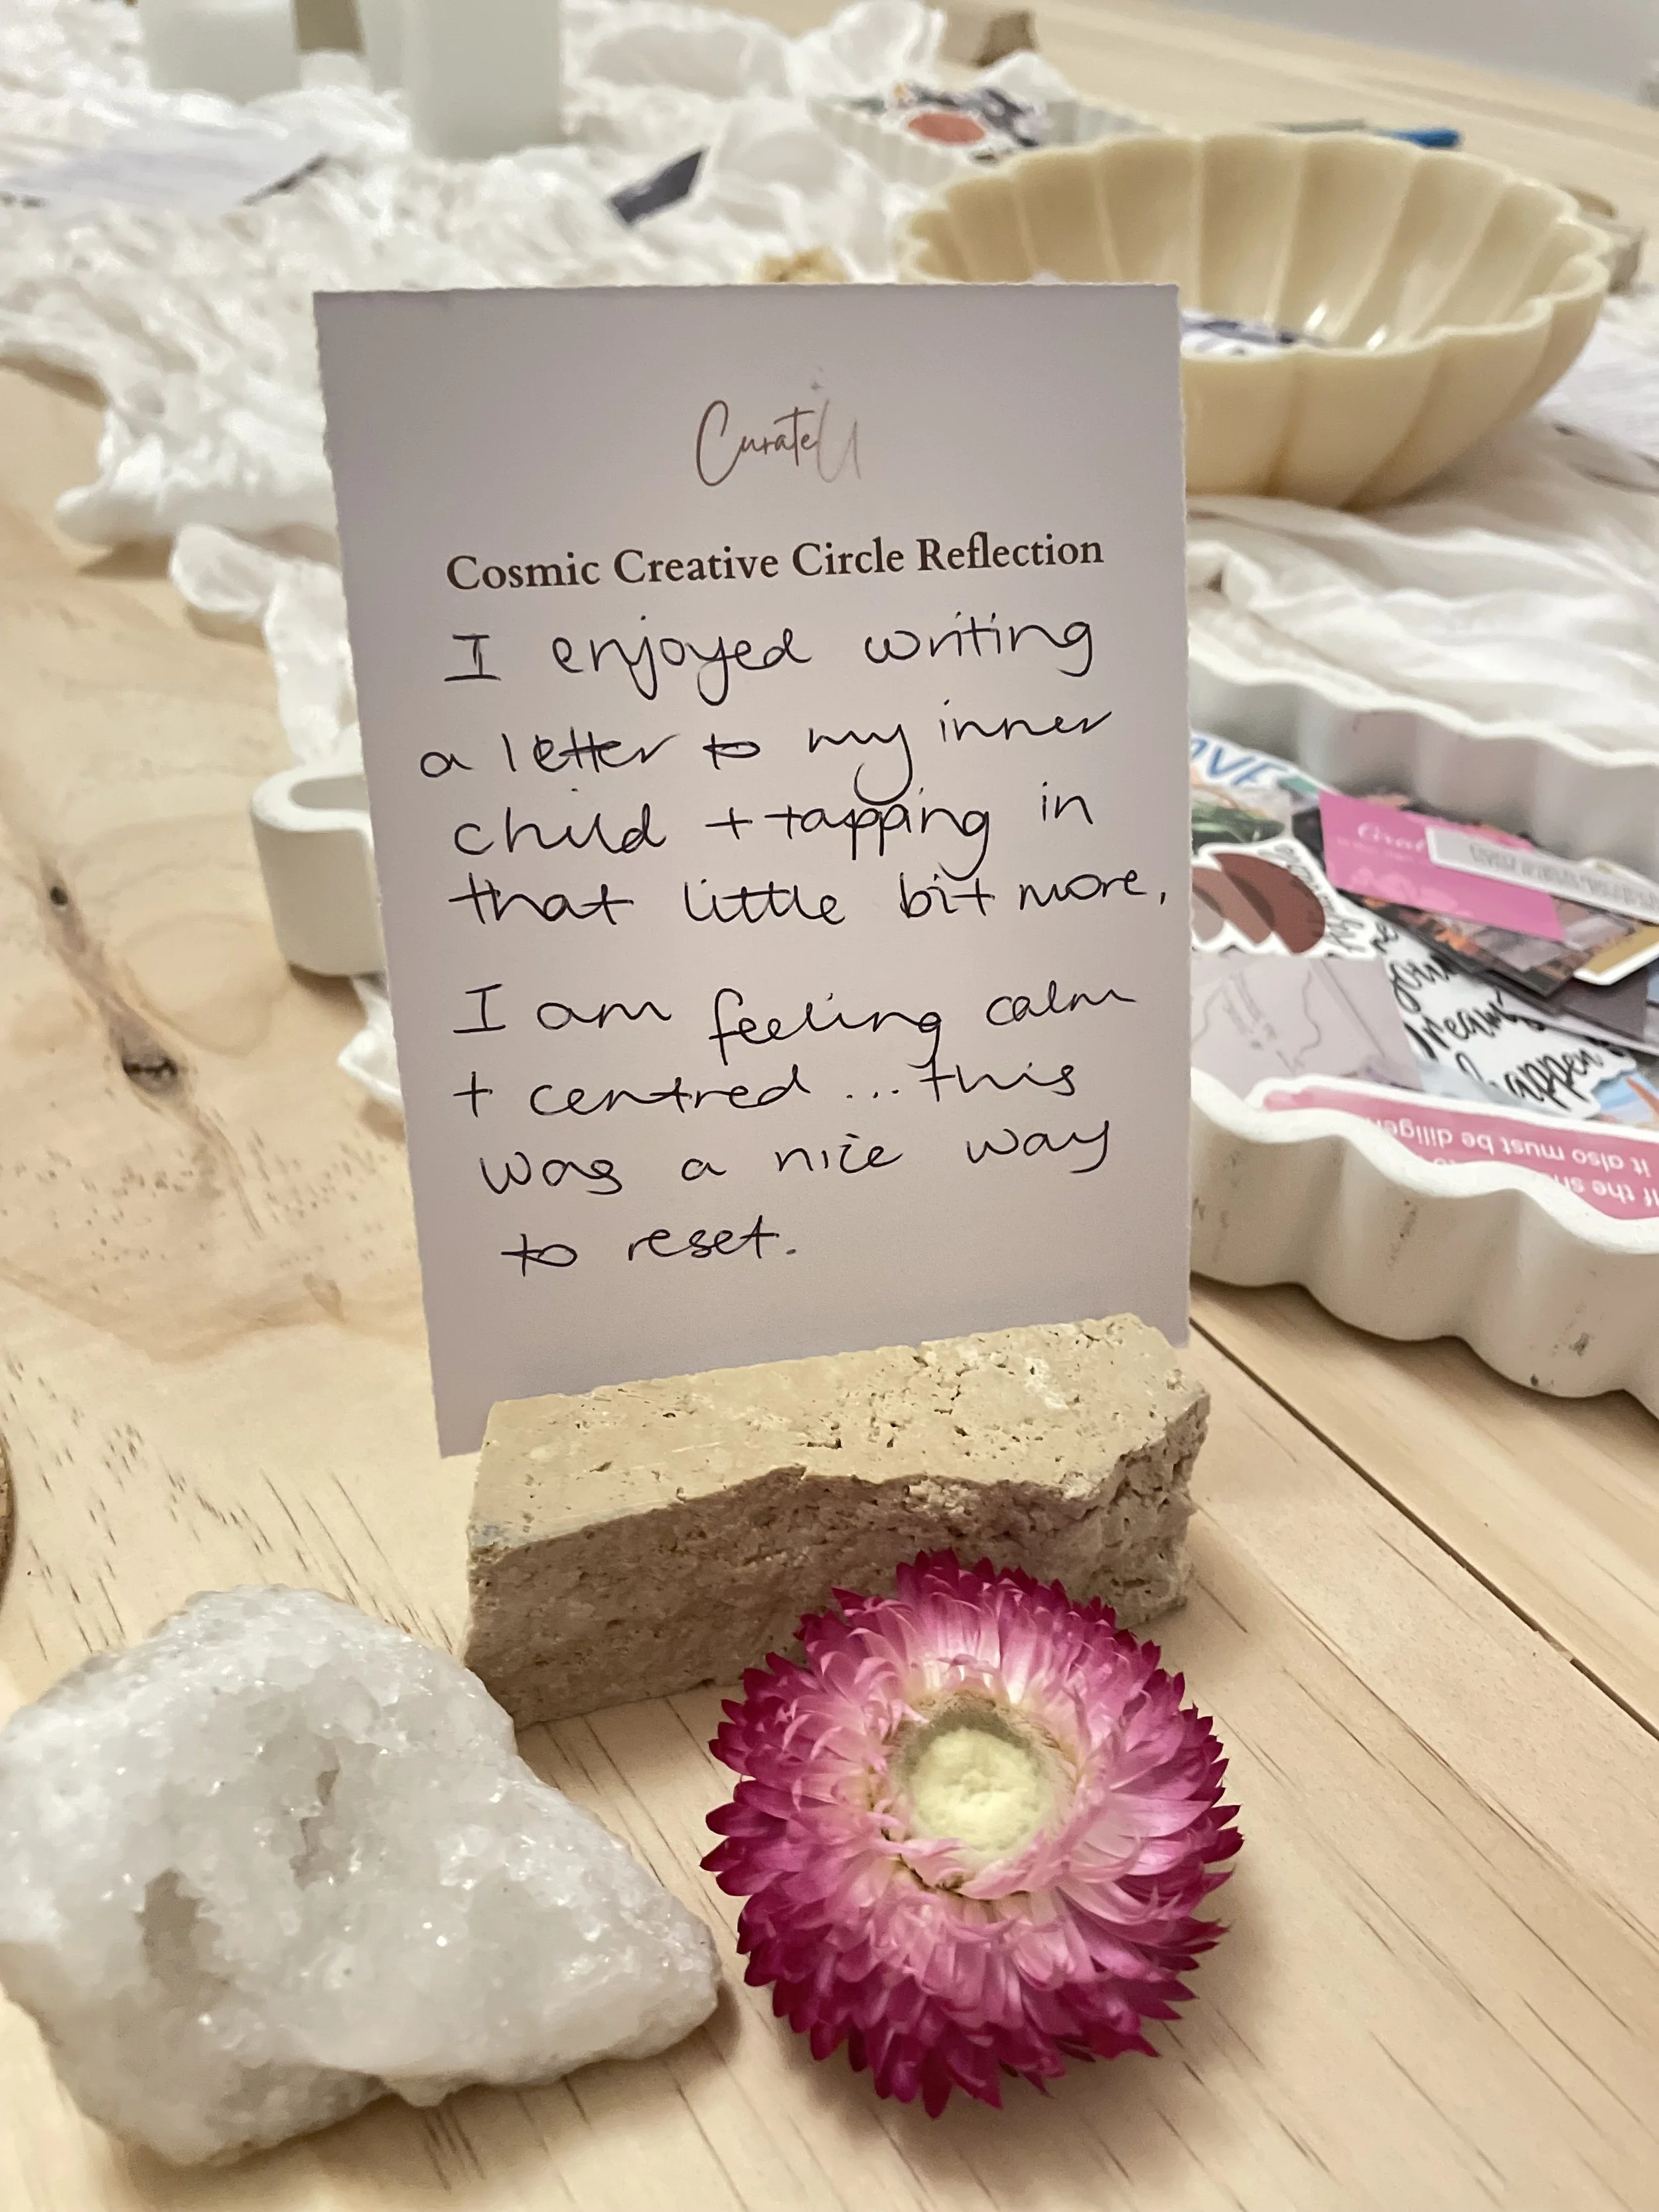 CurateU
Cosmic Creative Circle Reflection
I enjoyed writing
a letter to my inner
child + tapping in
that little bit more,
I am feeling calm
+ centred ... this
was a nice way
to reset.
your
dreams
happen
it also must be
If the